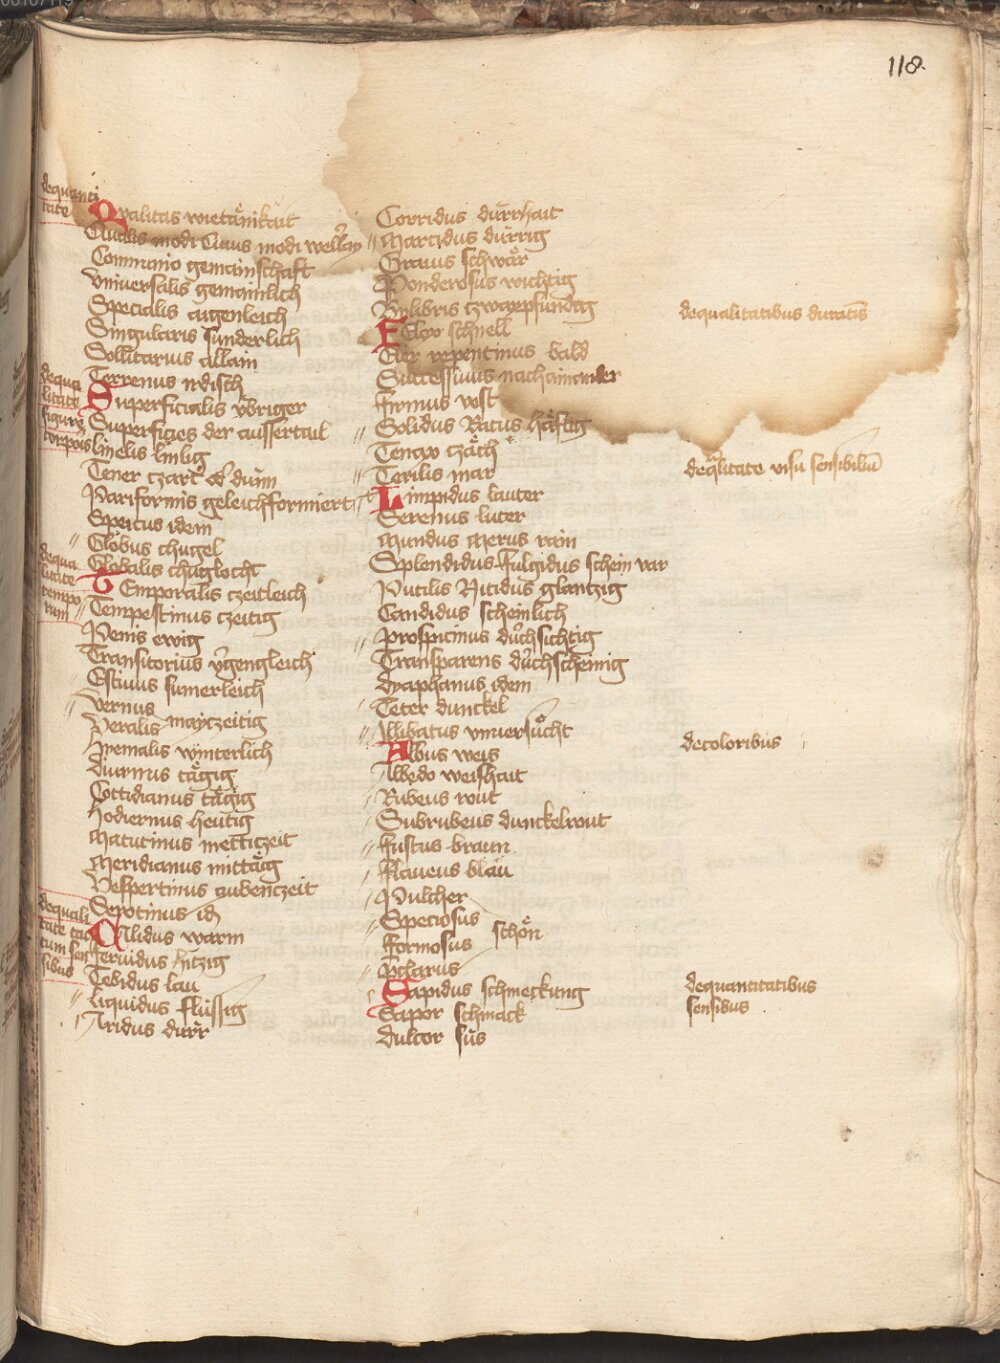 118
dequanti
tate
Qvalitas wietänikait
Qualis modi Cuius modi
Communio gemainschaft
Vniuersalis gemainlich
Specialis aigenleich
Singularis sunderlich
Sollitarius allain
Terrenus irdisch
dequa
litate
figure
corporis
Superficialis vbriger
Superficies der aussertail
linelis linlig
Tener czart dum
Pariformis geleichfformiert
Spericus idem
Globus chugel
Globalis chuglocht
dequa
litate
tempo
rum
Temporalis czeitleich
Tempestinus czeitig
Penis ewig
Transitorius vergengleich
Estiuus sumerleich
Vernus
Veralis mayczeitig
Hyemalis wynterlich
Diurnus tägig
Cottidianus tägig
Hodiernus heutig
Matutinus metticzeit
Meridianus mittäig
Vespertinus aubenczeit
Serotinus id
dequali
tate tac
tum sen
sibus
Calidus warm
Feruidus hitzig
Tebidus lau
liquidus flüssig
Aridus dürr
Corridus dürrhait
Marcidus dürrig
Grauis schwär
Ponderosus wichtig
Bylibris czwaypfundig
Velox schnell
repentinus bald
Successiuus nachainander
firmus vest
Solidus Ratus häftig
Tenax czäch
Terilis mar
Limpidus lauter
Serenus luter
Mundus Merus rain
Splendidus Fulgidus schein var
Rutilis Nitidus glanczig
Candidus scheinlich
prospicinus durchsichtig
Transparens durchscheinig
dyaphanus idem
Teter dunckel
Illibatus vnuersücht
Albus weis
Albedo weishait
Rubeus rout
Subrubeus dunckelrout
fustus braun
flaueus bläu
Pulcher
Speciosus schön
formosus
Pclarus
Sapidus schmeckung
Sapor schmack
dulcor süs
dequalitatibus
deqalitate visu sensibiliu
decoloribus
dequantitatibus
sensibus